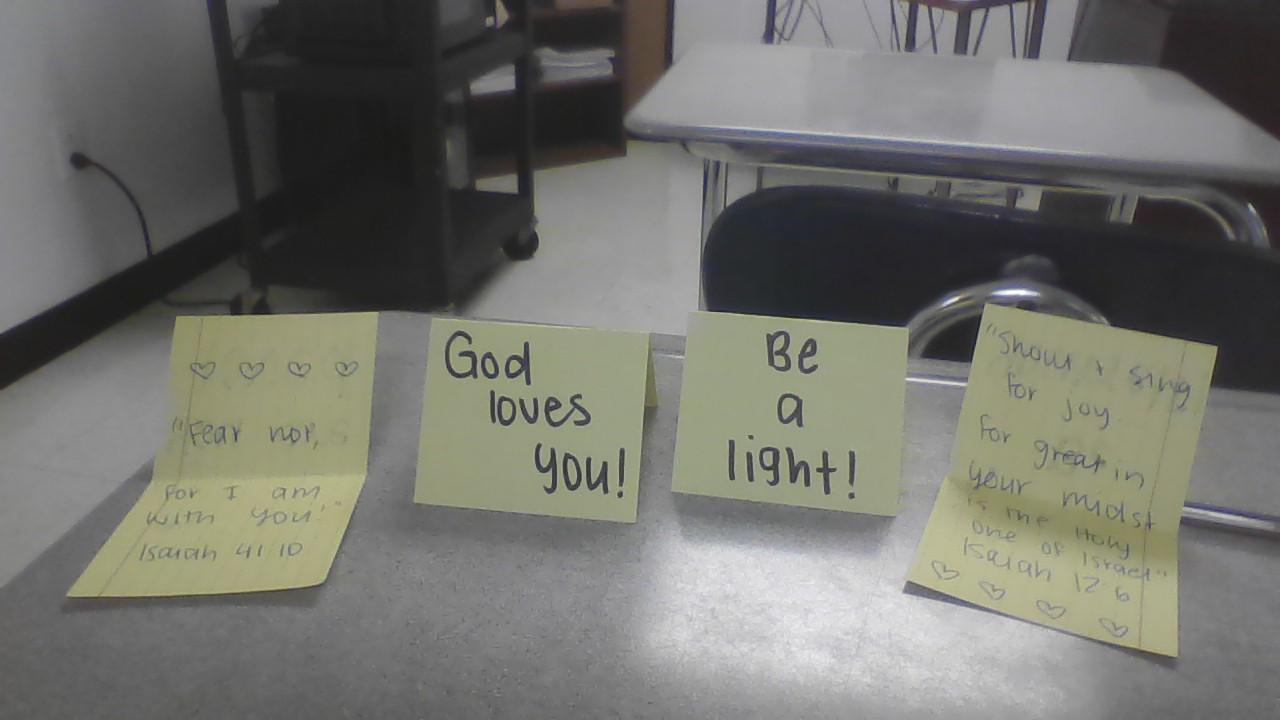 "Fear not,
for I am
with you!"
Isaiah 41:10
God
loves
you!
Be
a
light!
"Shout + sing
for joy.
For great in
your midst
is the Holy
one of Israel"
Isaiah 12:6